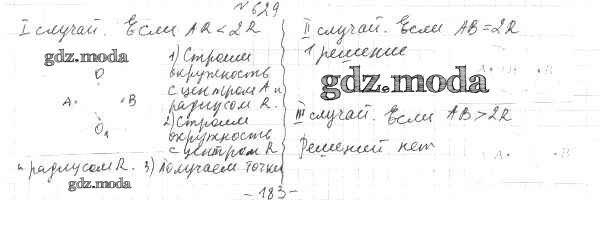 № 629
I случай. Если AR < 2R
gdz.moda
1) Строим
окружность
с центром A и
радиусом R.
O
A • • B
O₁
2) Строим
окружность
с центром R
и радиусом R. 3) Получаем точки
gdz.moda
II случай. Если AB = 2R
1 решение
A • • • B
gdz.moda
III случай. Если AB > 2R
Решений нет
A • • B
- 183 -